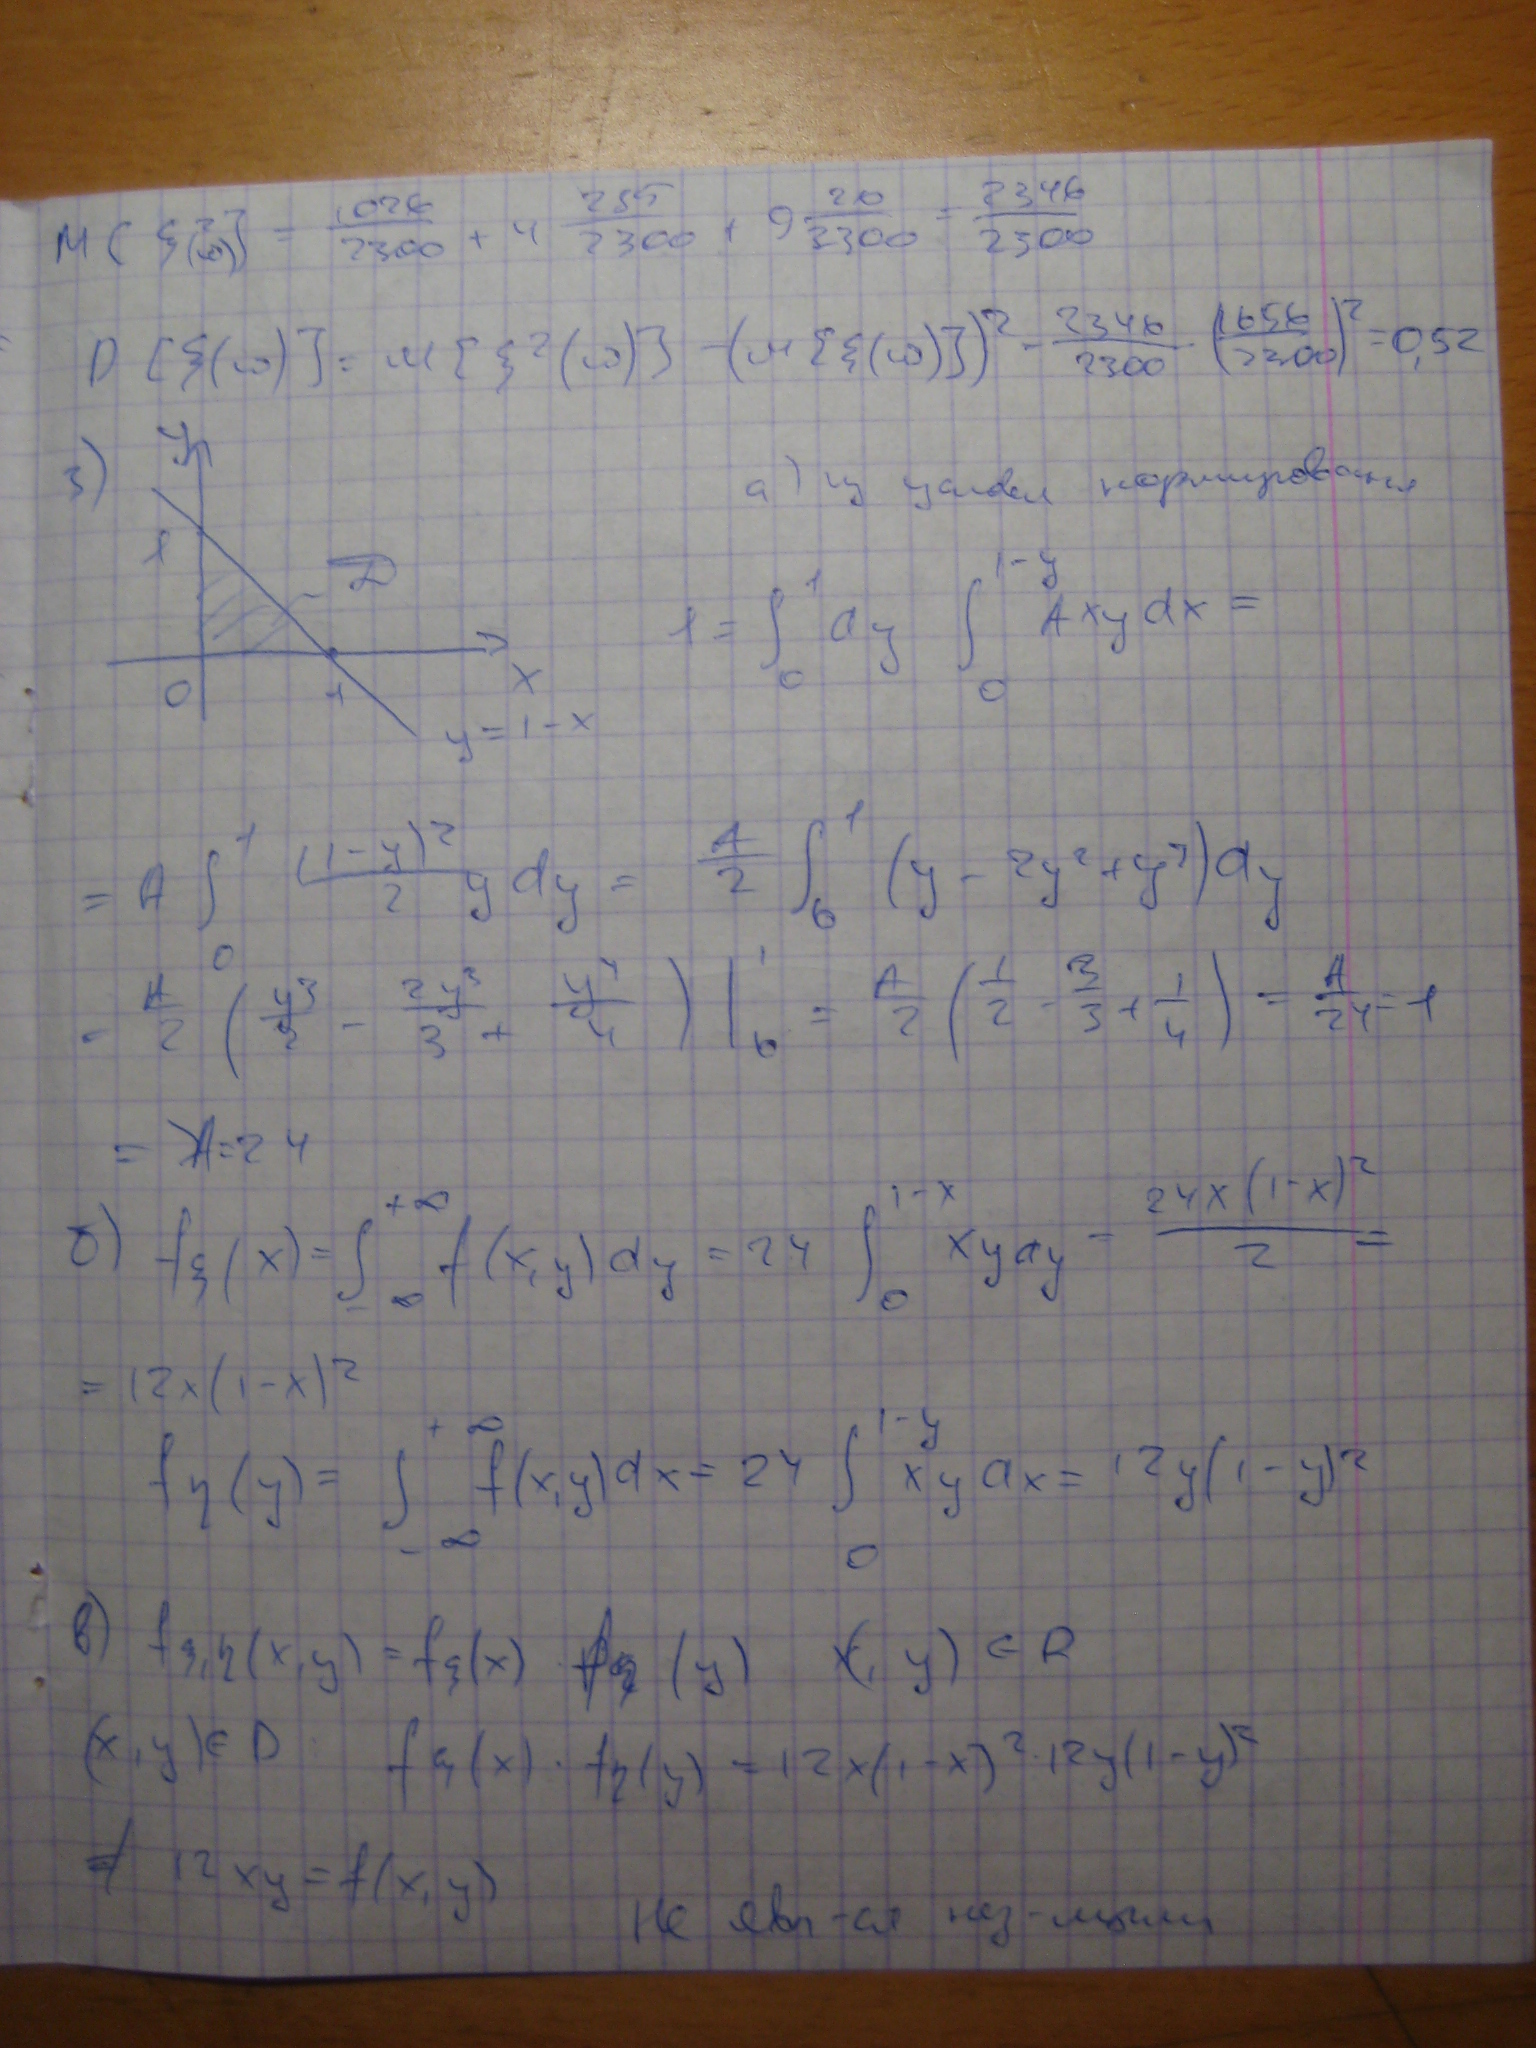 M[ξ²(ω)] = 1026/2300 + 4 255/2300 + 9 20/2300 = 2346/2300
D[ξ(ω)] = M[ξ²(ω)] - (M[ξ(ω)])² = 2346/2300 - (1656/2300)² = 0,52
3) y 1 0 1 x D y = 1-x
а) из условия нормирования
1 = ∫₀¹ dy ∫₀^(1-y) Axy dx =
= A ∫₀¹ (1-y)²/2 y dy = A/2 ∫₀¹ (y - 2y² + y³) dy
= A/2 (y²/2 - 2y³/3 + y⁴/4) |₀¹ = A/2 (1/2 - 2/3 + 1/4) = A/24 = 1
= A = 24
б) f_ξ(x) = ∫_(-∞)^(+∞) f(x,y) dy = 24 ∫₀^(1-x) xy dy = 24x(1-x)²/2 =
= 12x(1-x)²
f_η(y) = ∫_(-∞)^(+∞) f(x,y) dx = 24 ∫₀^(1-y) xy dx = 12y(1-y)²
в) f_ξ,η(x,y) = f_ξ(x) · f_η(y) x, y) ∈ R
(x,y) ∈ D f_ξ(x) · f_η(y) = 12x(1-x)² · 12y(1-y)²
≠ 12xy = f(x,y)
Не явл-ся нез-мыми